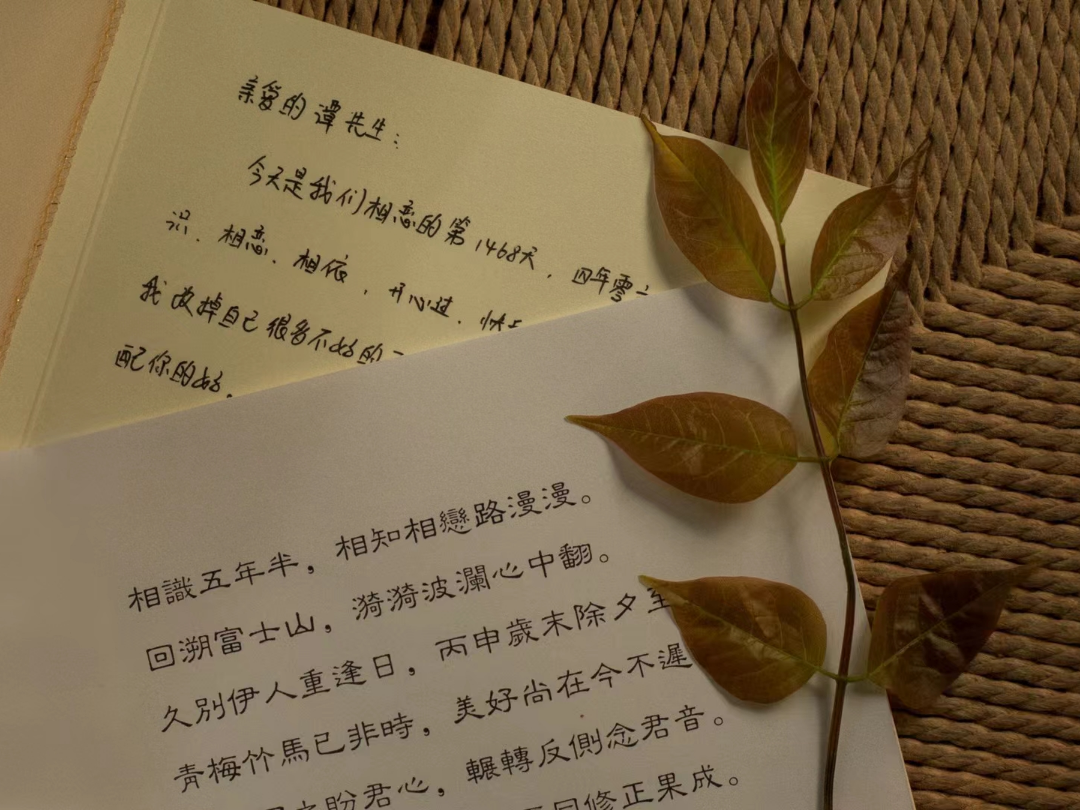 亲爱的谭先生：
今天是我们相恋的第1468天，四年零
识、相恋、相依，开心过、快
我改掉自己很多不好的
配你的好。
相識五年半，相知相戀路漫漫。
回溯富士山，漪漪波瀾心中翻。
久別伊人重逢日，丙申歲末除夕至
青梅竹馬已非時，美好尚在今不遲
盼君心，輾轉反側念君音。
同修正果成。